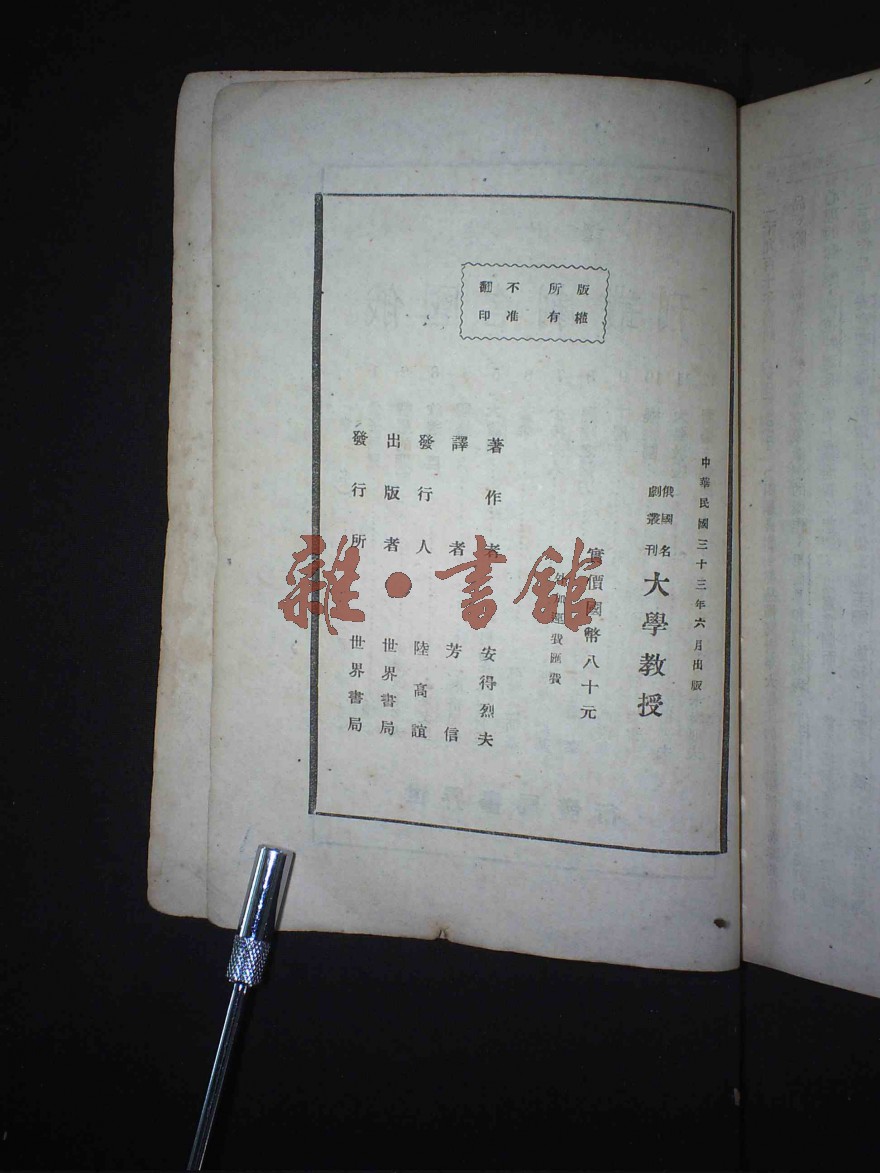 版權
所有
不准
翻印
中華民國三十三年六月出版
俄國名
劇叢刊
大學教授
實價國幣八十元
外加運費匯費
著作者 安得烈夫
譯者 芳信
發行人 陸高誼
出版者 世界書局
發行所 世界書局
雜·書館